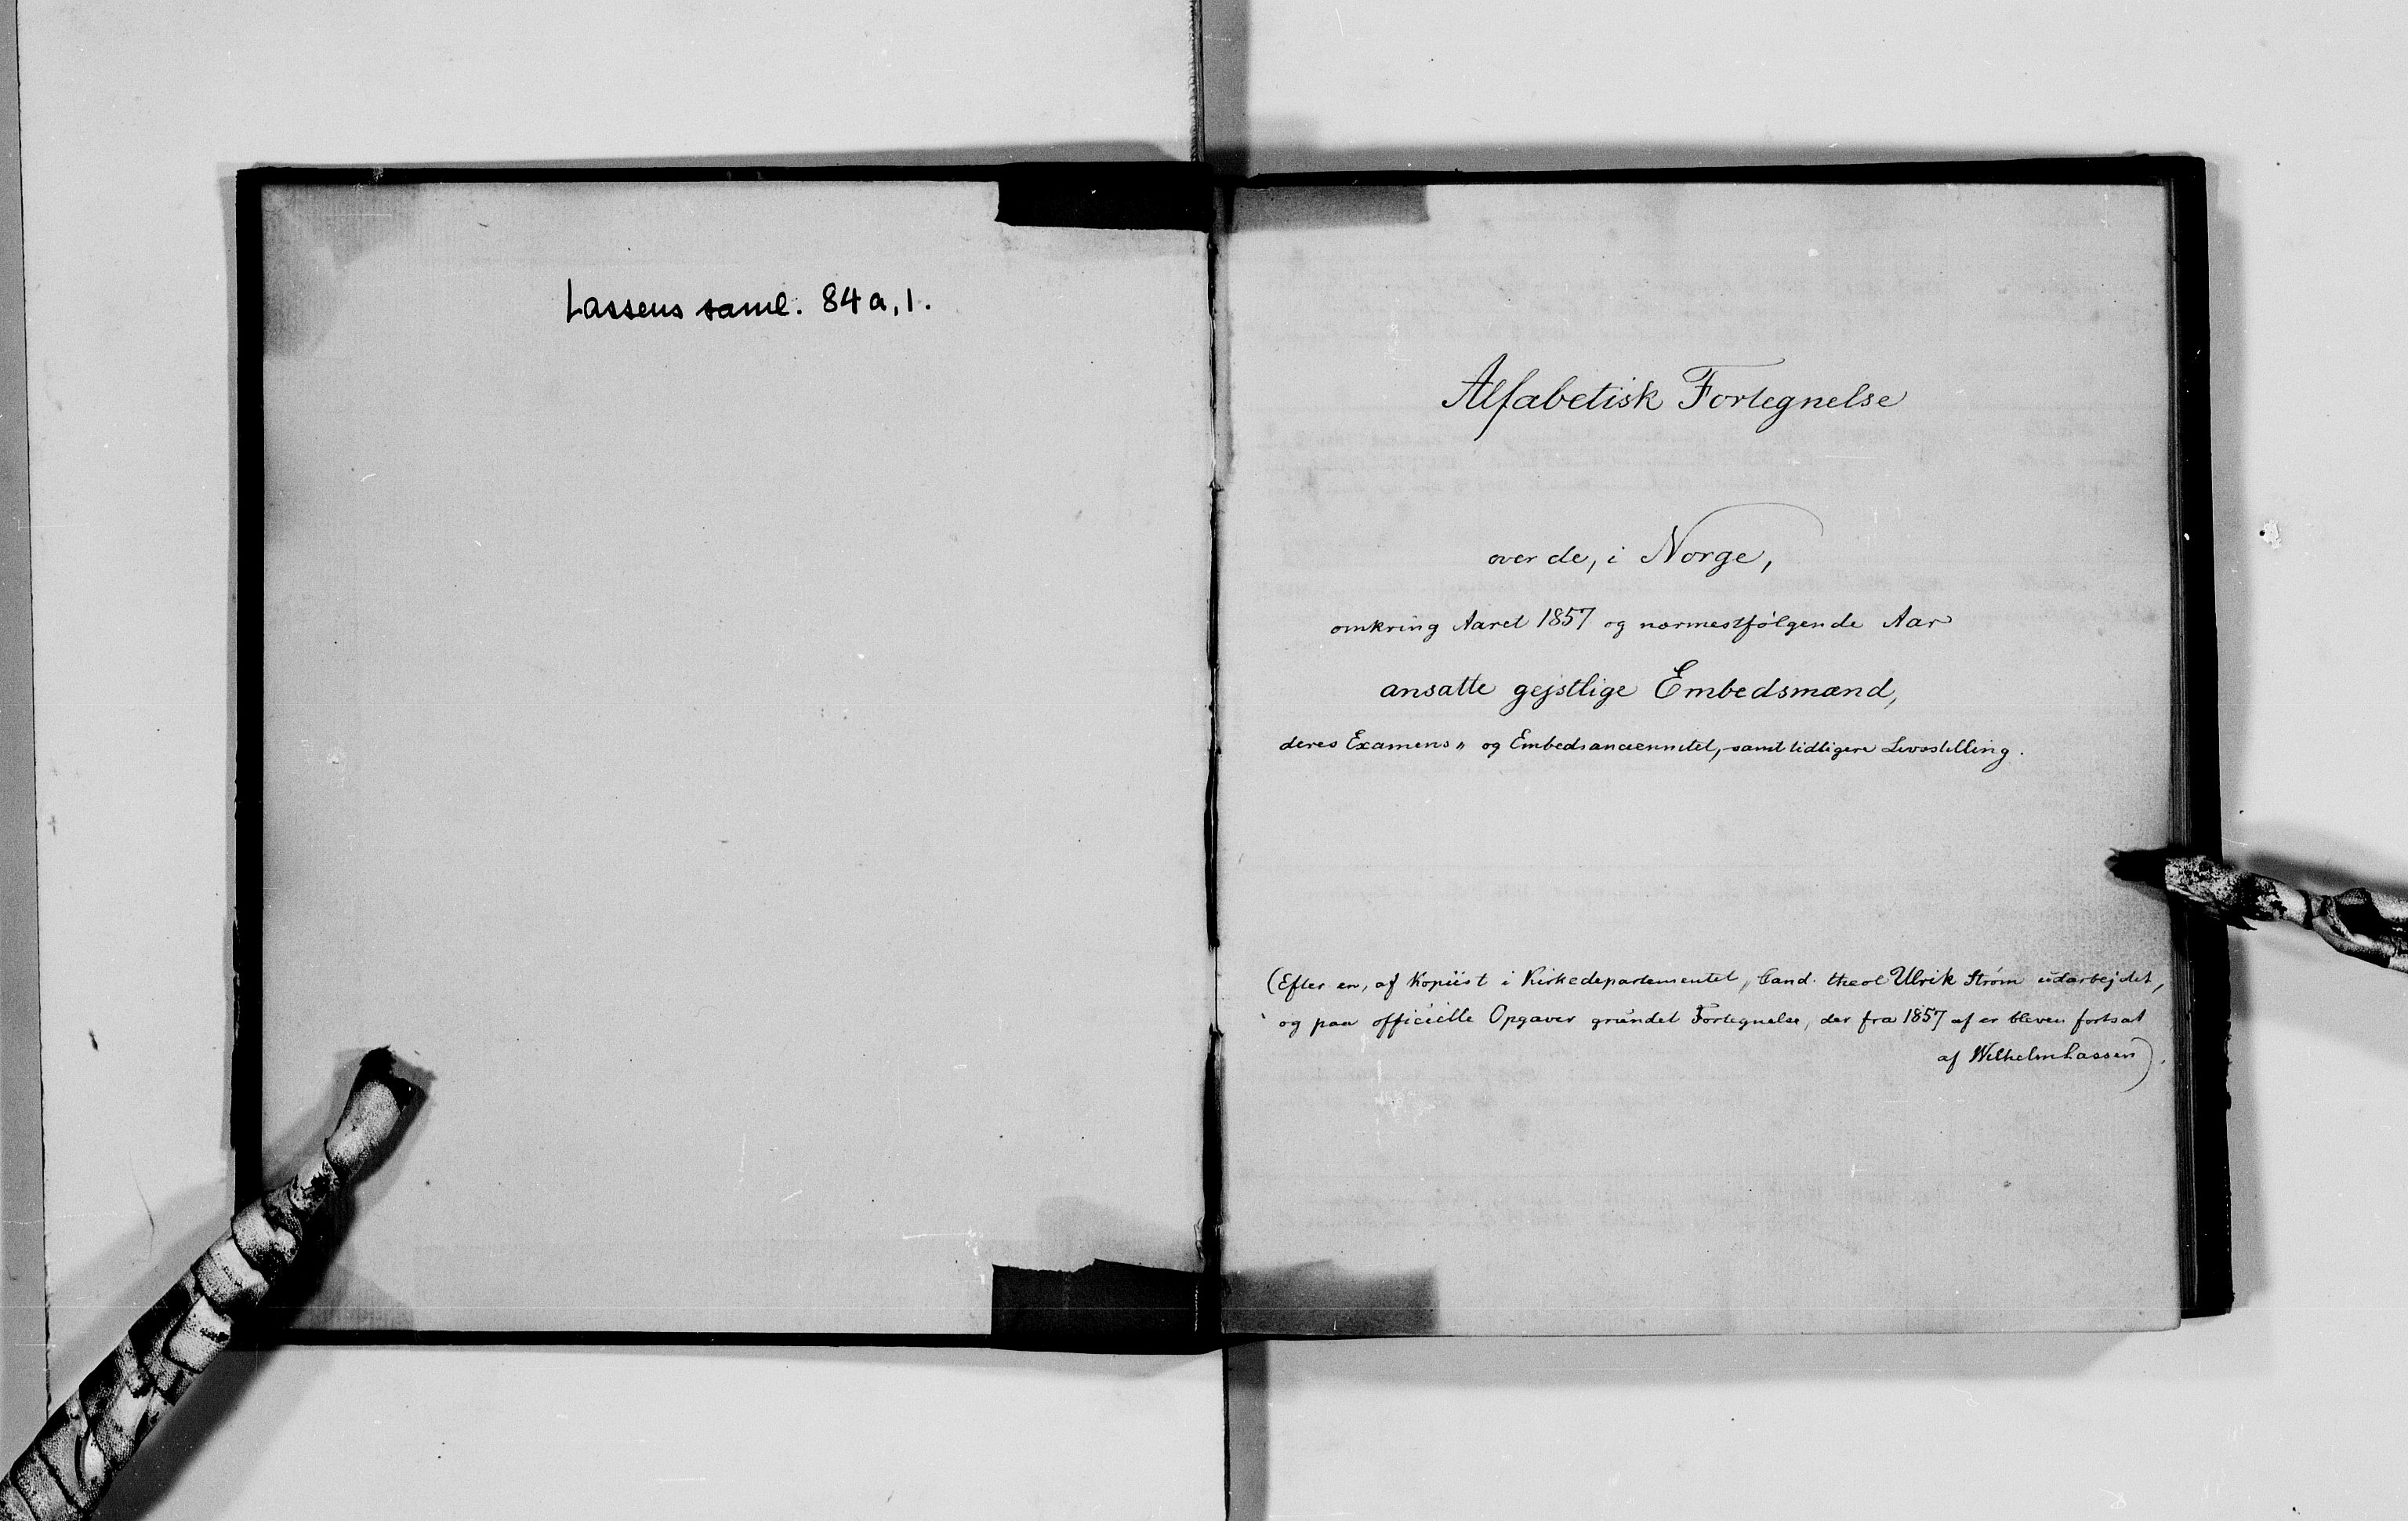 Lassens saml. 84 a, 1.
Alfabetisk Fortegnelse
over de, i Norge,
omkring Aaret 1857 og nærmestfølgende Aar
ansatte gejstlige Embedsmænd,
deres Examens„ og Embedsanciennitet, samt tidligere Livsstilling.
(Efter en, af Kopiist i Kirkedepartementet, Cand. theol Ulrik Strøm udarbejdet,
og paa officielle Opgaver grundet Fortegnelse, der fra 1857 af er bleven fortsat
af Wilhelm Lassen).